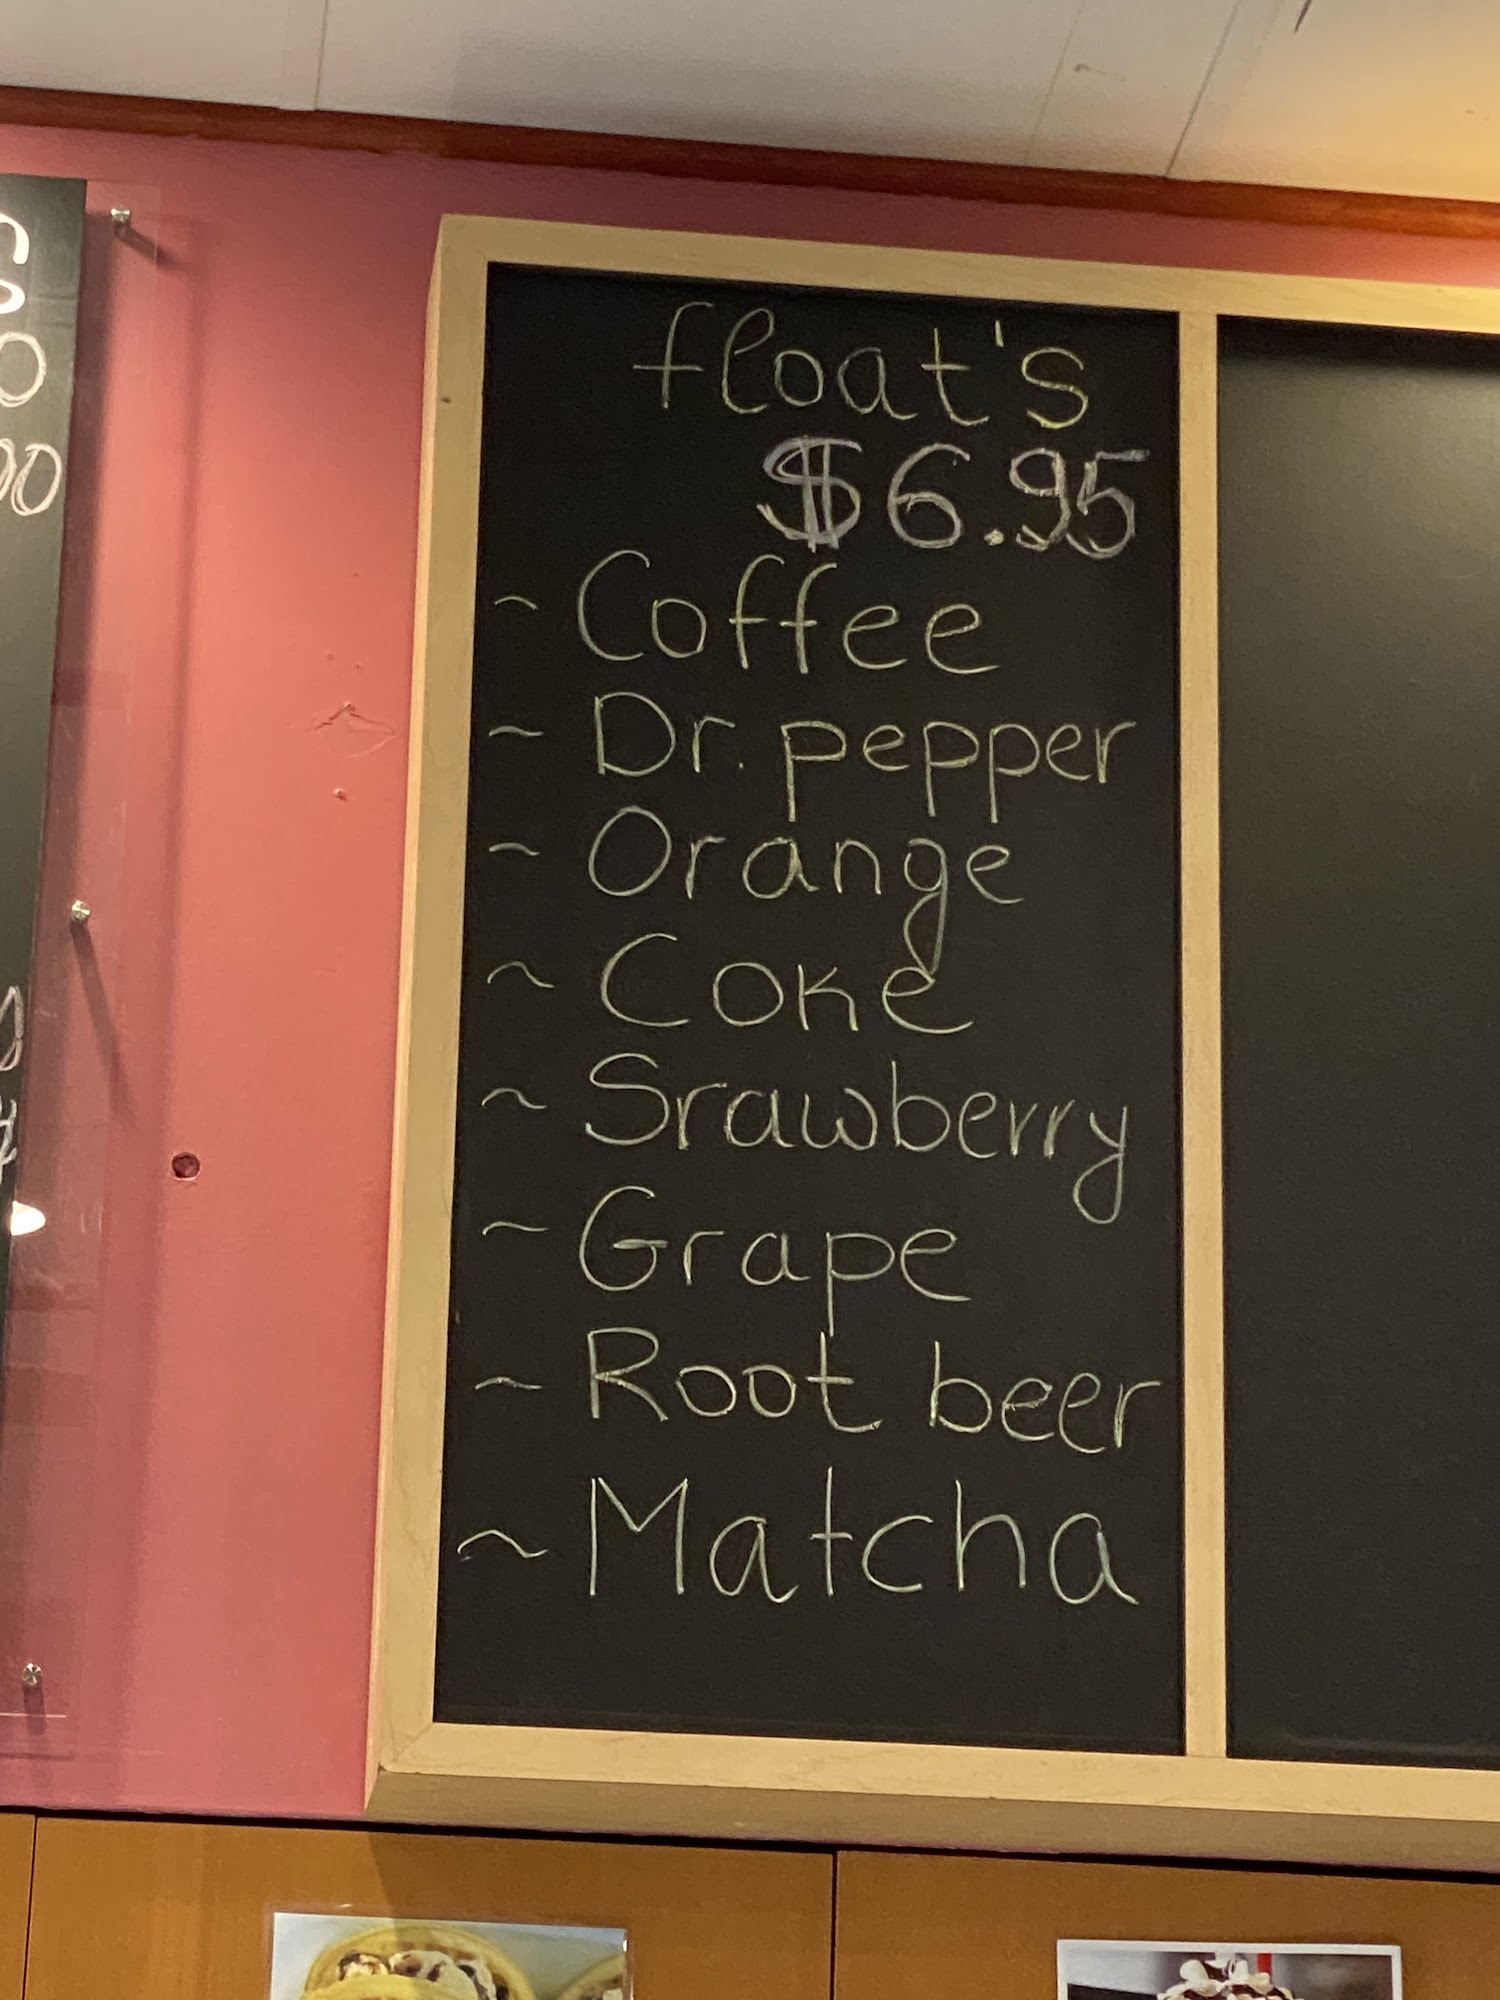 float's
$6.95
~ Coffee
~ Dr. pepper
~ Orange
~ Coke
~ Srawberry
~ Grape
~ Root beer
~ Matcha